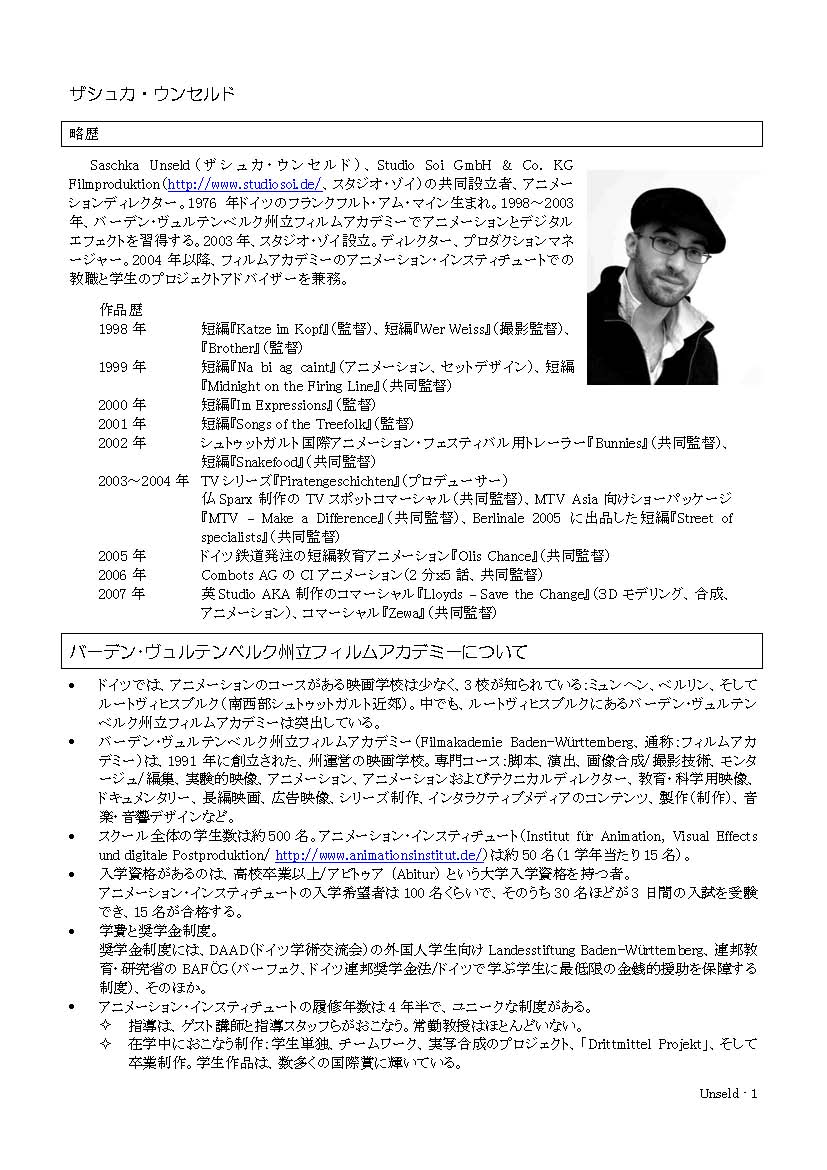 ザシュカ・ウンセルド
略歴
Saschka Unseld（ザシュカ・ウンセルド）、Studio Soi GmbH & Co. KG
Filmproduktion（http://www.studiosoi.de/、スタジオ・ゾイ）の共同設立者、アニメー
ションディレクター。1976 年ドイツのフランクフルト・アム・マイン生まれ。1998～2003
年、バーデン・ヴュルテンベルク州立フィルムアカデミーでアニメーションとデジタル
エフェクトを習得する。2003 年、スタジオ・ゾイ設立。ディレクター、プロダクションマネ
ージャー。2004 年以降、フィルムアカデミーのアニメーション・インスティチュートでの
教職と学生のプロジェクトアドバイザーを兼務。
作品歴
1998 年 短編『Katze im Kopf』（監督）、短編『Wer Weiss』（撮影監督）、
『Brother』（監督）
1999 年 短編『Na bi ag caint』（アニメーション、セットデザイン）、短編
『Midnight on the Firing Line』（共同監督）
2000 年 短編『Im Expressions』（監督）
2001 年 短編『Songs of the Treefolk』（監督）
2002 年 シュトゥットガルト国際アニメーション・フェスティバル用トレーラー『Bunnies』（共同監督）、
短編『Snakefood』（共同監督）
2003～2004 年 TVシリーズ『Piratengeschichten』（プロデューサー）
仏 Sparx 制作の TV スポットコマーシャル（共同監督）、MTV Asia 向けショーパッケージ
『MTV – Make a Difference』（共同監督）、Berlinale 2005 に出品した短編『Street of
specialists』（共同監督）
2005 年 ドイツ鉄道発注の短編教育アニメーション『Olis Chance』（共同監督）
2006 年 Combots AG の CI アニメーション（2 分x5 話、共同監督）
2007 年 英 Studio AKA 制作のコマーシャル『Lloyds – Save the Change』（3D モデリング、合成、
アニメーション）、コマーシャル『Zewa』（共同監督）
バーデン・ヴュルテンベルク州立フィルムアカデミーについて
• ドイツでは、アニメーションのコースがある映画学校は少なく、3 校が知られている：ミュンヘン、ベルリン、そして
ルートヴィヒスブルク（南西部シュトゥットガルト近郊）。中でも、ルートヴィヒスブルクにあるバーデン・ヴュルテン
ベルク州立フィルムアカデミーは突出している。
• バーデン・ヴュルテンベルク州立フィルムアカデミー（Filmakademie Baden-Württemberg、通称：フィルムアカ
デミー）は、1991 年に創立された、州運営の映画学校。専門コース：脚本、演出、画像合成/撮影技術、モンタ
ージュ/編集、実験的映像、アニメーション、アニメーションおよびテクニカルディレクター、教育・科学用映像、
ドキュメンタリー、長編映画、広告映像、シリーズ制作、インタラクティブメディアのコンテンツ、製作（制作）、音
楽・音響デザインなど。
• スクール全体の学生数は約500 名。アニメーション・インスティチュート（Institut für Animation, Visual Effects
und digitale Postproduktion/ http://www.animationsinstitut.de/）は約 50 名（1 学年当たり 15 名）。
• 入学資格があるのは、高校卒業以上/アビトゥア (Abitur) という大学入学資格を持つ者。
アニメーション・インスティチュートの入学希望者は 100 名くらいで、そのうち 30 名ほどが 3 日間の入試を受験
でき、15 名が合格する。
• 学費と奨学金制度。
奨学金制度には、DAAD（ドイツ学術交流会）の外国人学生向け Landesstiftung Baden-Württemberg、連邦教
育・研究省の BAFÖG（バーフェク、ドイツ連邦奨学金法/ドイツで学ぶ学生に最低限の金銭的援助を保障する
制度）、そのほか。
• アニメーション・インスティチュートの履修年数は 4 年半で、ユニークな制度がある。
✧ 指導は、ゲスト講師と指導スタッフらがおこなう。常勤教授はほとんどいない。
✧ 在学中におこなう制作：学生単独、チームワーク、実写合成のプロジェクト、「Drittmittel Projekt」、そして
卒業制作。学生作品は、数多くの国際賞に輝いている。
Unseld - 1